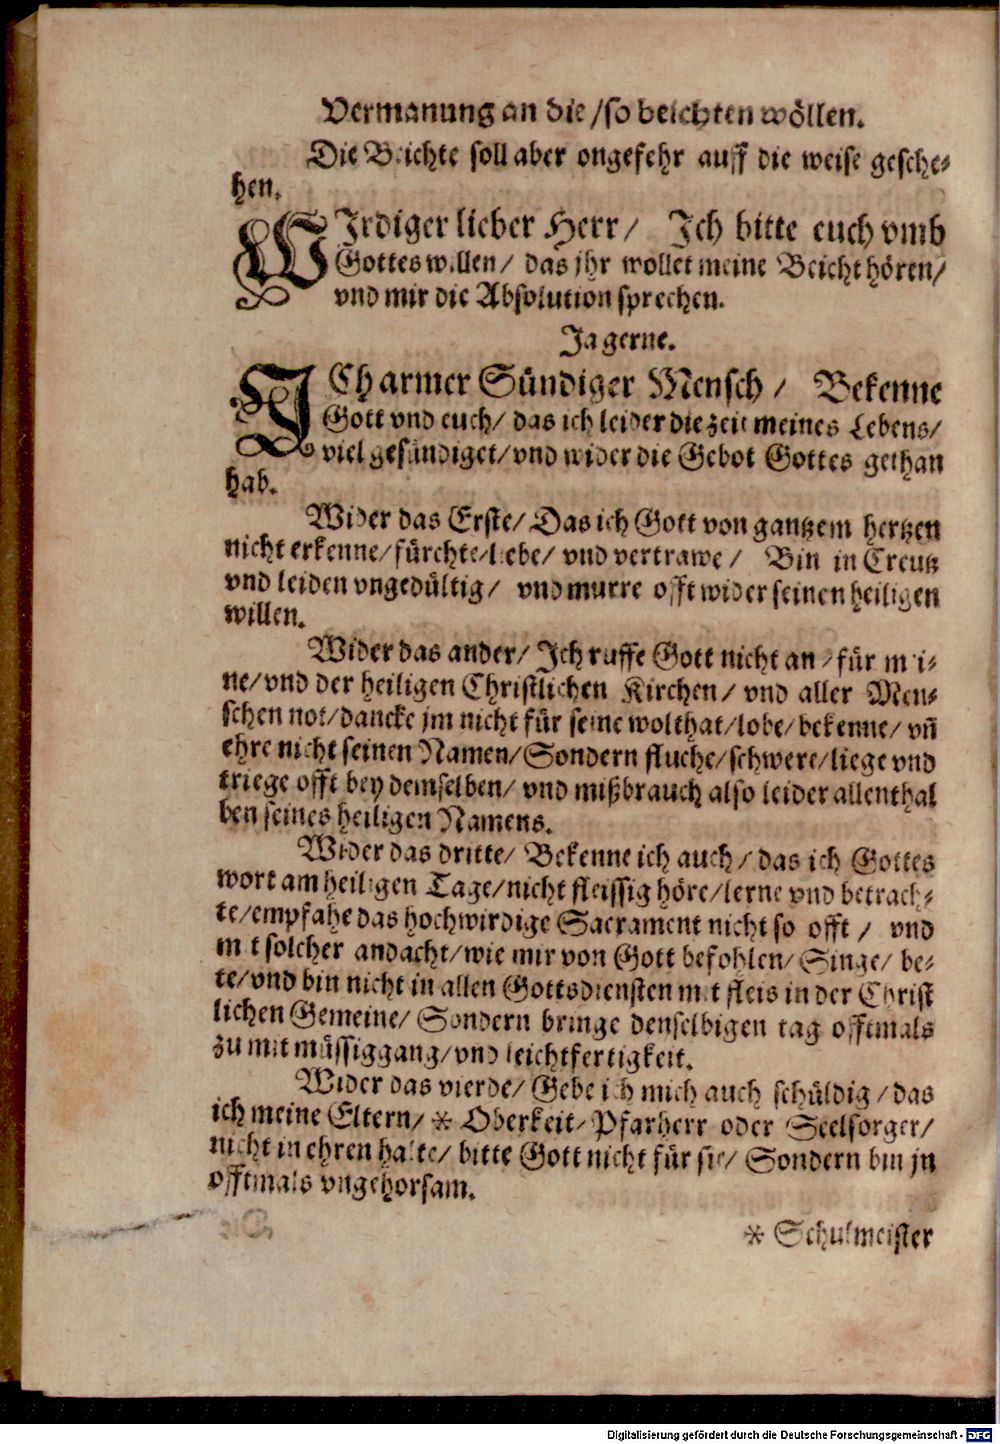 Vermanung an die /so beichten wöllen.
Die Beichte soll aber ongefehr auff die weise gesche-
hen.
WIrdiger lieber Herr/ Ich bitte euch vmb
Gottes willen/ das jhr wollet meine Beicht hören/
vnd mir die Absolution sprechen.
Ja gerne.
ICh armer Sündiger Mensch / Bekenne
Gott vnd euch/ das ich leider die zeit meines Lebens/
viel gesündiget/ vnd wider die Gebot Gottes gethan
hab.
Wider das Erste/ Das ich Gott von gantzem hertzen
nicht erkenne/ fürchte/ liebe/ vnd vertrawe / Bin in Creutz
vnd leiden vngedültig/ vnd murre offt wider seinen heiligen
willen.
Wider das ander/ Ich ruffe Gott nicht an / für mei-
ne/ vnd der heiligen Christlichen Kirchen/ vnd aller Men-
schen not/ dancke jm nicht für seine wolthat/ lobe/ bekenne/ vñ
ehre nicht seinen Namen/ Sondern fluche/ schwere/ liege vnd
triege offt bey demselben/ vnd mißbrauch also leider allenthal
ben seines heiligen Namens.
Wider das dritte/ Bekenne ich auch/ das ich Gottes
wort am heiligen Tage/ nicht fleissig höre/ lerne vnd betrach-
te/ empfahe das hochwirdige Sacrament nicht so offt / vnd
mit solcher andacht/ wie mir von Gott befohlen/ Singe/ be-
te/ vnd bin nicht in allen Gottsdiensten mit fleis in der Christ
lichen Gemeine/ Sondern bringe denselbigen tag offtmals
zu mit müssiggang/ vnd leichtfertigkeit.
Wider das vierde/ Gebe ich mich auch schüldig/ das
ich meine Eltern/ * Oberkeit/ Pfarherr oder Seelsorger/
nicht in ehren halte/ bitte Gott nicht für sie/ Sondern bin jn
offtmals vngehorsam.
* Schulmeister
Digitalisierung gefördert durch die Deutsche Forschungsgemeinschaft - DFG